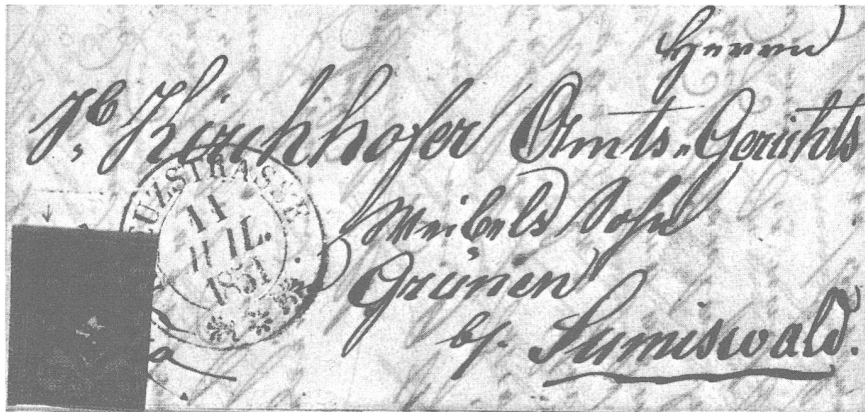 Herrn
Jb Kirchhofer Amts-Gerichts
Weibels Sohn
Grünen
by. Sumiswald.
EUZSTRASSE
11
JUIL.
1851